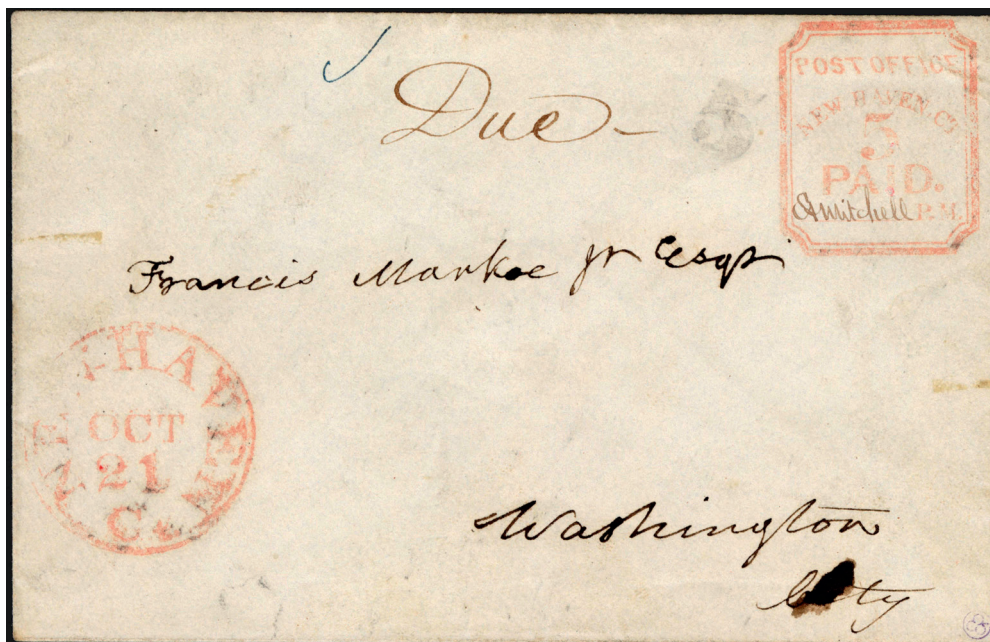 POST OFFICE
NEW HAVEN. Ct
5
PAID.
E A Mitchell P. M.
Due
Francis Markoe Jr Esqr
NEW-HAVEN
OCT
21
Ct.
Washington
City